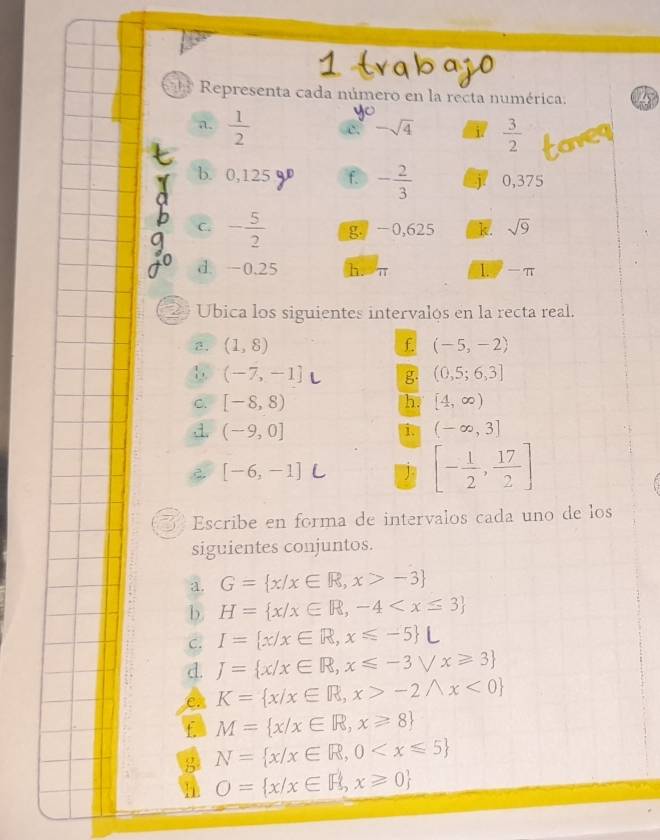 1 trabajo
Representa cada número en la recta numérica.
yo
a. 1/2 e. -√4 i. 3/2 tarea
trabajo
b. 0,125 yo f. -2/3 j. 0,375
c. -5/2 g. -0,625 k. √9
d. -0,25 h. π l. -π
2 Ubica los siguientes intervalos en la recta real.
a. (1, 8) f. (-5, -2)
b. (-7, -1] L g. (0,5; 6,3]
c. [-8, 8) h. [4, ∞)
d. (-9, 0] i. (-∞, 3]
e. [-6, -1] L j. [-1/2, 17/2]
3 Escribe en forma de intervalos cada uno de los
siguientes conjuntos.
a. G = {x/x ∈ ℝ, x > -3}
b. H = {x/x ∈ ℝ, -4 < x ≤ 3}
c. I = {x/x ∈ ℝ, x ⩽ -5} L
d. J = {x/x ∈ ℝ, x ⩽ -3 ∨ x ⩾ 3}
e. K = {x/x ∈ ℝ, x > -2 ∧ x < 0}
f. M = {x/x ∈ ℝ, x ⩾ 8}
g. N = {x/x ∈ ℝ, 0 < x ⩽ 5}
h. O = {x/x ∈ ℝ, x ⩾ 0}